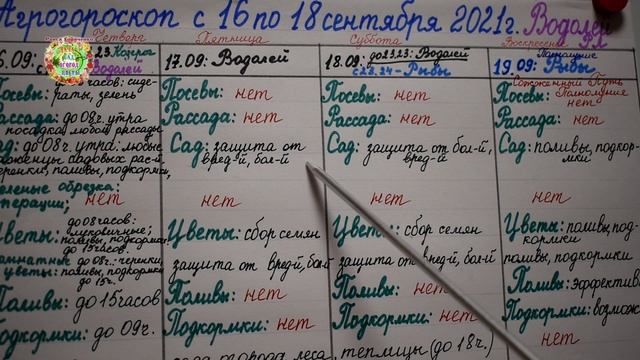 Агрогороскоп с 16 по 18 сентября 2021г. Водолей
Четверг
Пятница
Суббота
Воскресенье
6.09:
Водолей
17.09: Водолей
18.09: до 23.23: Водолей
с 23.24 - Рыбы
19.09: Рыбы
Полнолуние
часов: сиде-
раты, зелень
до 08ч. утра
посадка любой рассады
до 08ч. утра: любые
саженцы садовых рас-й,
черенки, поливы, подкормки,
зеленые обрезка:
операции;
нет
цветы:
до 08 часов:
луковичные;
поливы, подкормки
до 15 часов
комнатные
цветы:
до 08ч.: черенки,
поливы, подкормки
до 15ч.
Поливы: до 15 часов
подкормки: до 09ч.
Посевы: нет
Рассада: нет
Сад: защита от
вред-й, бол-й
нет
Цветы: сбор семян
защита от вред-й, бол-й
Поливы: нет
Подкормки: нет
Посевы: нет
Рассада: нет
Сад: защита от бол-й,
вред-й
нет
Цветы: сбор семян
защита от вред-й, бол-й
Поливы: нет
Подкормки: нет
теплицы (до 18ч.)
Сожженный Путь
Посевы: Полнолуние
нет
Рассада: нет
Сад: поливы, подкор-
мки
нет
Цветы: поливы, под-
кормки
поливы, подкормки
Поливы: эффектив
Подкормки: возмож
нет